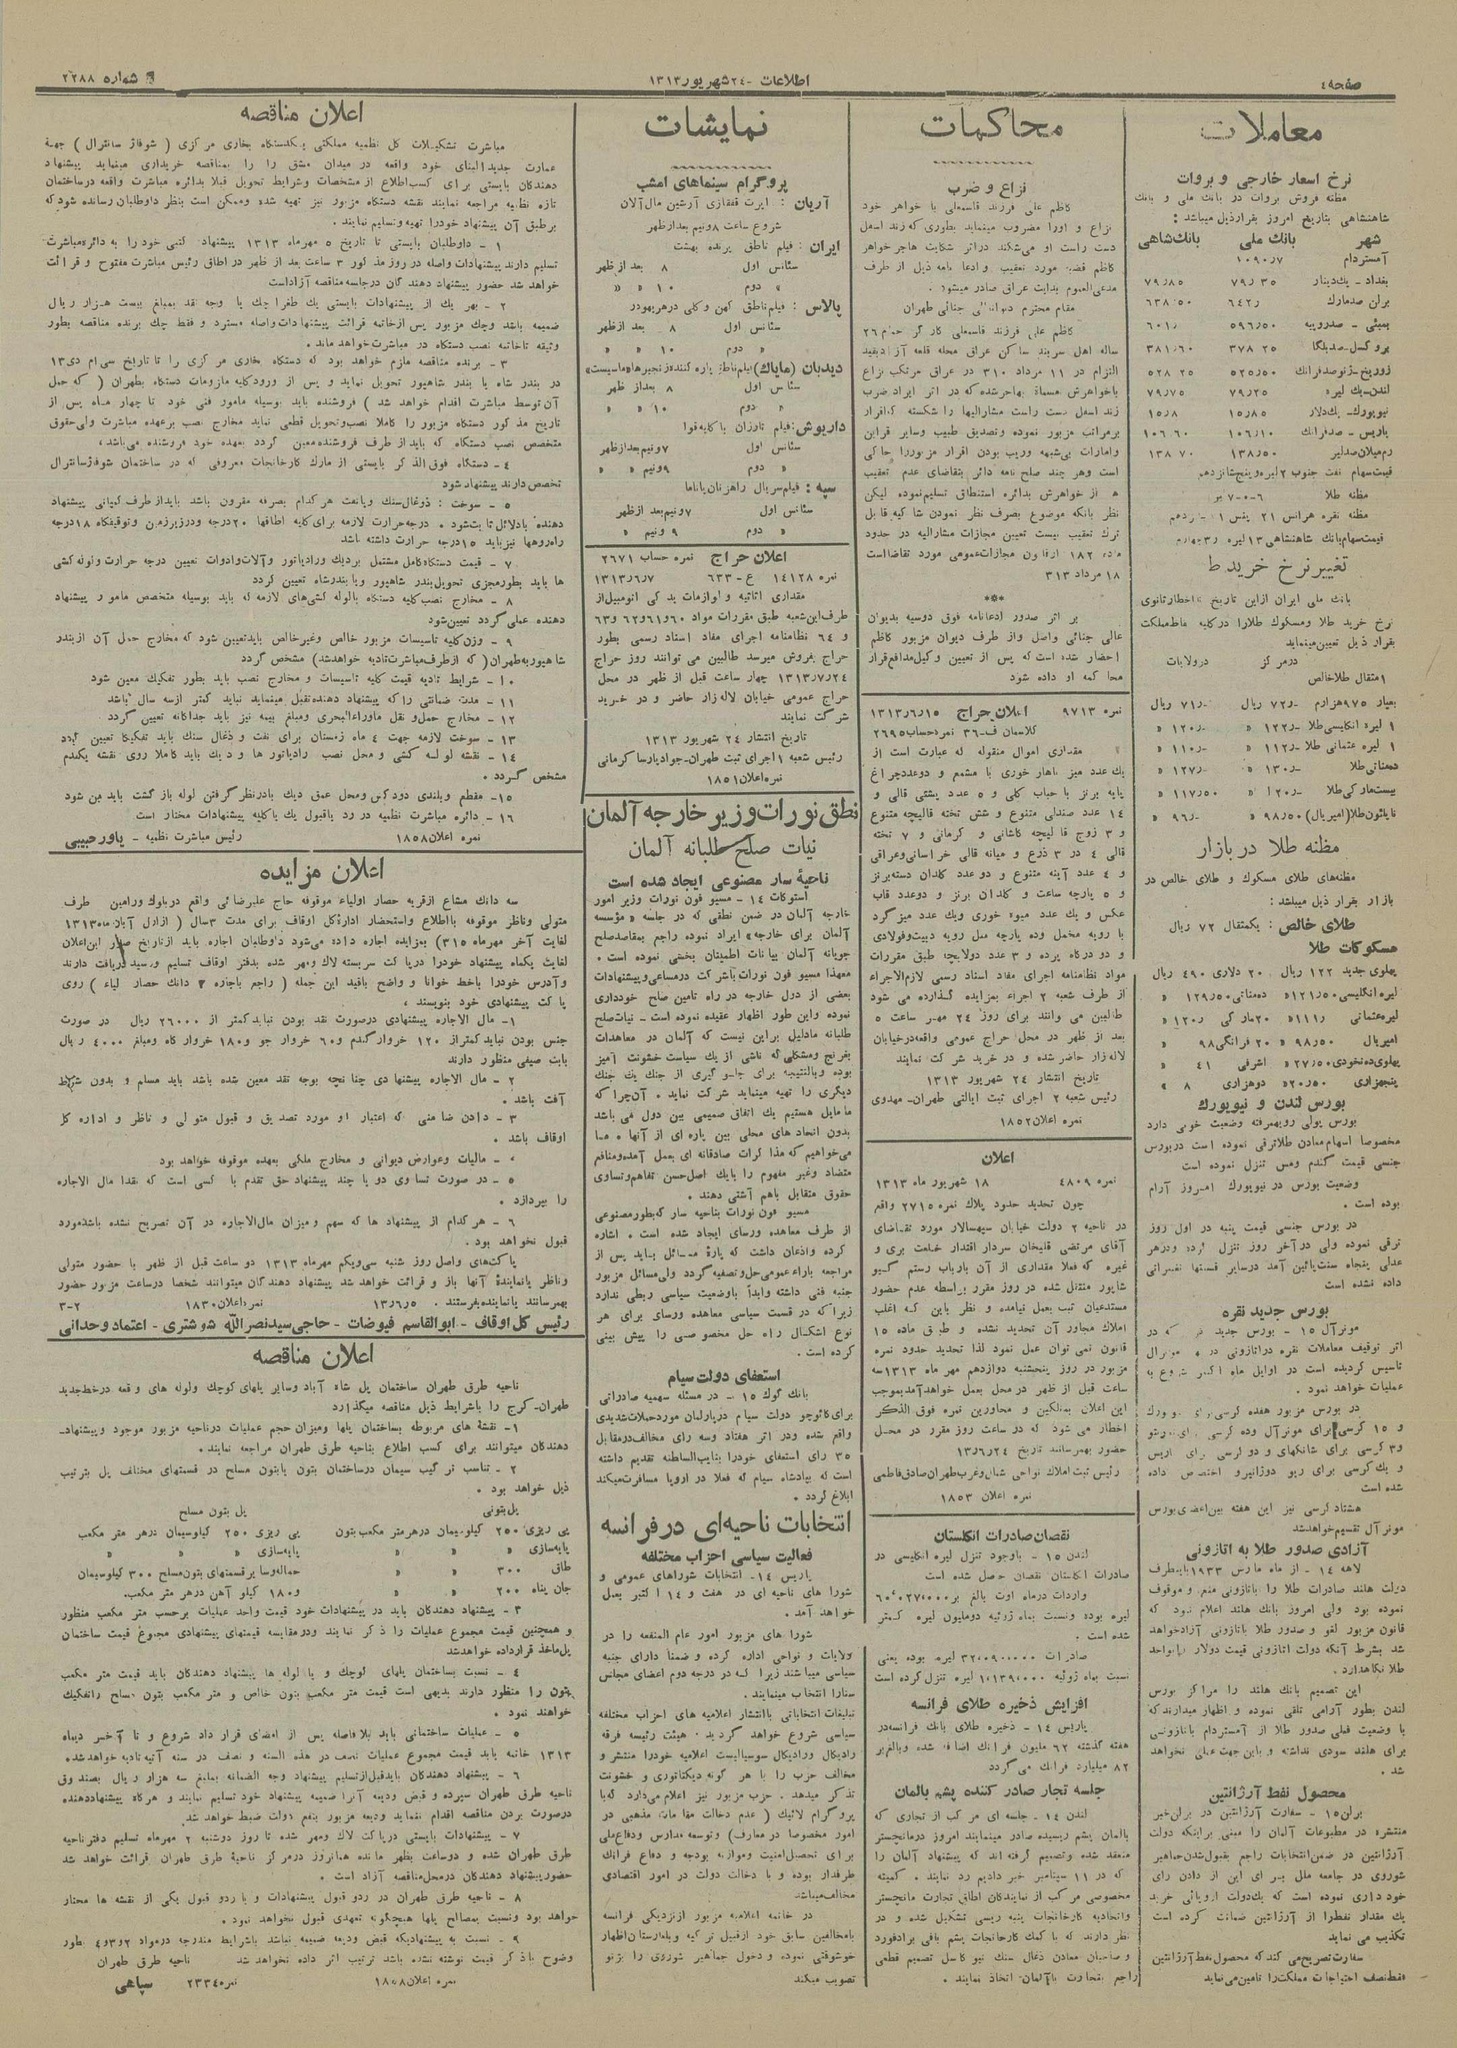 صفحه ٤
اطلاعات - ٢٤ شهریور ١٣١٣
شماره ٢٢٨٨
معاملات
نرخ اسعار خارجی و بروات
مظنه فروش بروات در بانک ملی و بانک
شاهنشاهی بتاریخ امروز بقرار ذیل میباشد :
شهر بانک ملی بانک شاهی
آمستردام ١٠٩٠/٧
بغداد ـ یک دینار ٧٩/٣٥ ٧٩/٨٥
برلن صد مارک ٦٤٢/ ٦٣٨/٥٠
بمبئی ـ صد روپیه ٥٩٦/٥٠ ٦٠١/
بروکسل ـ صد بلگا ٣٧٨ ٢٥ ٣٨١/٦٠
زوریخ ـ ژنو صد فرانک ٥٢٥/٥٠ ٥٢٨ ٢٥
لندن ـ یک لیره ٧٩/٢٥ ٧٩/٧٥
نیویورک ـ یک دلار ١٥/٨٥ ١٥/٨
پاریس ـ صد فرانک ١٠٦/١٠ ١٠٦ ٦٠
رم میلان صد لیر ١٣٨/٥٠ ١٣٨ ٧٠
قیمت سهام نفت جنوب ٢ لیره و پنج شانزدهم
مظنه طلا
تغییر نرخ خرید ط
بانک ملی ایران از این تاریخ تا اخطار ثانوی
نرخ خرید طلا و مسکوک طلا را در کلیه نقاط مملکت
بقرار ذیل تعیین مینماید
در مرکز در ولایات
١ مثقال طلا خالص
بعیار ٩٧٥ هزارم ـ/٧٢ ریال ـ/٧١ ریال
١ لیره انگلیسی طلا ـ/١٢٢ « ـ/١٢٠ «
١ لیره عثمانی طلا ـ/١١٢ « ـ/١١٠ «
ده مناتی طلا ـ/١٣٠ « ـ/١٢٧ «
بیست مارکی طلا ـ/١٢٠ « ١١٧/٥٠ «
ناپلئون طلا (امپریال) ٩٨/٥٠ « ـ/٩٦ «
مظنه طلا در بازار
مظنه‌های طلای مسکوک و طلای خالص در
بازار بقرار ذیل میباشد :
طلای خالص : یکمثقال ٧٢ ریال
مسکوکات طلا
پهلوی جدید ١٢٢ ریال ٢٠ دلاری ٤٩٠ ریال
لیره انگلیسی ١٢١/٥٠ « ده مناتی ١٢٩/٥٠ «
لیره عثمانی /١١١ « ٢٠ مارکی /١٢٠ «
امپریال ٩٨/٥٠ « ٢٠ فرانکی ٩٨ «
پهلوی ده نخودی ٢٧/٥٠ « اشرفی ٤١ «
پنجهزاری ٢٠/٥٠ « دوهزاری ٨ «
بورس لندن و نیویورک
بورس پولی رویهمرفته وضعیت خوبی دارد
مخصوصا اسهام معادن طلا ترقی نموده است در بورس
جنسی قیمت گندم و مس تنزل نموده است
وضعیت بورس در نیویورک امروز آرام
بوده است .
در بورس جنسی قیمت پنبه در اول روز
ترقی نموده ولی در آخر روز تنزل کرده و در هر
عدلی پنجاه سنت پائین آمد در سایر قسمتها تغییراتی
داده نشده است
بورس جدید نقره
مونرآل ١٥ - بورس جدید نقره که در
اثر توقیف معاملات نقره در اتازونی در مونرآل
تاسیس گردیده است در اوایل ماه اکتبر شروع به
عملیات خواهد نمود .
در بورس مزبور هفده کرسی برای نیویورک
و ١٥ کرسی برای مونرآل و ده کرسی برای
و ٣ کرسی برای شانگهای و دو کرسی برای پاریس
و یک کرسی برای ریو دوژانیرو اختصاص داده
شده است
هشتاد کرسی نیز این هفته بین اعضای بورس
مونرآل تقسیم خواهد شد
آزادی صدور طلا به اتازونی
لاهه ١٤ - از ماه مارس ١٩٣٣ باینطرف
دولت هلند صادرات طلا را باتازونی منع و موقوف
نموده بود ولی امروز بانک هلند اعلام نمود که
قانون مزبور لغو و صدور طلا باتازونی آزاد خواهد
شد بشرط آنکه دولت اتازونی قیمت دولار را بواحد
طلا نگاهدارد .
این تصمیم بانک هلند را مراکز بورس
لندن بطور آرامی تلقی نموده و اظهار میدارند که
با وضعیت فعلی صدور طلا از آمستردام باتازونی
برای هلند سودی نداشته و باین جهت عملی نخواهد
شد .
محصول نفط آرژانتین
برلن ١٥ - سفارت آرژانتین در برلن خبر
منتشره در مطبوعات آلمان را مبنی براینکه دولت
آرژانتین در ضمن انتخابات راجع بقبول شدن جماهیر
شوروی در جامعه ملل پس از این از دادن رای
خودداری نموده است که یکدولت اروپائی خرید
یک مقدار نفط را از آرژانتین ضمانت کرده است
تکذیب می نماید
سفارت تصریح می کند که محصول نفط آرژانتین
فقط نصف احتیاجات مملکت را تامین می نماید
محاکمات
نزاع و ضرب
کاظم علی فرزند قاسمعلی با خواهر خود
نزاع و او را مضروب مینماید بطوری که زند اسفل
دست راست او می‌شکند در اثر شکایت هاجر خواهر
کاظم قضیه مورد تعقیب و ادعا نامه ذیل از طرف
مدعی العموم بدایت عراق صادر میشود .
مقام محترم دیوانعالی جنائی طهران
کاظم علی فرزند قاسمعلی کارگر حمام ٢٦
ساله اهل سربند ساکن عراق محله قلعه آزاد بقید
التزام در ١١ مرداد ٣١٠ در عراق مرتکب نزاع
باخواهرش مسماة بهاجر شده که در اثر ایراد ضرب
زند اسفل دست راست مشارالیها را شکسته که اقرار
برمراتب مزبور نموده و تصدیق طبیب و سایر قراین
و امارات بی‌شبهه و ریب بودن اقرار مزبور را حاکی
است و هر چند صلح نامه دائر بتقاضای عدم تعقیب
هم از خواهرش بدائره استنطاق تسلیم نموده لیکن
نظر بانکه موضوع بصرف نظر نمودن شاکیه قابل
ترک تعقیب نیست تعیین مجازات مشارالیه در حدود
ماده ١٨٢ از قانون مجازات عمومی مورد تقاضا است
١٨ مرداد ٣١٣
***
بر اثر صدور ادعانامه فوق دوسیه بدیوان
عالی جنائی واصل و از طرف دیوان مزبور کاظم
احضار شده است که پس از تعیین وکیل مدافع قرار
محاکمه او داده شود
نمره ٩٧١٣ اعلان حراج ١٣١٣/٦/١٥
کلاسمان ف-٣٦ نمره حساب ٢٦٩٥
مقداری اموال منقوله که عبارت است از
یک عدد میز ناهار خوری با مشمع و دو عدد چراغ
پایه برنز با حباب کلی و ٥ عدد پشتی قالی و
١٤ عدد صندلی متنوع و شش تخته قالیچه متنوع
و ٣ زوج قالیچه کاشانی و کرمانی و ٧ تخته
قالی ٤ در ٣ ذرع و میانه قالی خراسانی و عراقی
و ٤ عدد آینه متنوع و دو عدد گلدان دسته برنز
و ٥ پارچه ساعت و گلدان برنز و دو عدد قاب
عکس و یک عدد میوه خوری و یک عدد میز گرد
با رویه مخمل و ده پارچه مبل رویه دبیت و فولادی
و دو درگاه پرده و ٣ عدد دولابچه طبق مقررات
مواد نظامنامه اجرای مفاد اسناد رسمی لازم‌الاجراء
از طرف شعبه ٢ اجراء بمزایده گذارده می شود
طالبین می توانند برای روز ٢٤ مهر ساعت ٥
بعد از ظهر در محل حراج عمومی واقعه در خیابان
لاله زار حاضر شده و در خرید شرکت نمایند
تاریخ انتشار ٢٤ شهریور ١٣١٣
رئیس شعبه ٢ اجرای ثبت ایالتی طهران ـ مهدوی
نمره اعلان ١٨٥٢
اعلان
نمره ٤٨٠٩ ١٨ شهریور ماه ١٣١٣
چون تحدید حدود پلاک نمره ٢٧١٥ واقع
در ناحیه ٢ دولت خیابان سپهسالار مورد تقاضای
آقای مرتضی قلیخان سردار اقتدار خلعت بری و
غیره که فعلا مقداری از آن بارباب رستم گیو
شاپور منتقل شده در روز مقرر بواسطه عدم حضور
مستدعیان ثبت بعمل نیامده و نظر باین که اغلب
املاک مجاور آن تحدید نشده و طبق ماده ١٥
قانون نمی توان عمل نمود لذا تحدید حدود نمره
مزبور در روز پنجشنبه دوازدهم مهر ماه ١٣١٣ سه
ساعت قبل از ظهر در محل بعمل خواهد آمد بموجب
این اعلان بمالکین و مجاورین نمره فوق الذکر
اخطار می شود که در ساعت روز مقرر در محل
حضور بهمرسانند تاریخ ١٣/٦/٢٤
رئیس ثبت املاک نواحی شمال و غرب طهران صادق فاطمی
نمره اعلان ١٨٥٣
نقصان صادرات انگلستان
لندن ١٥ - باوجود تنزل لیره انگلیسی در
صادرات انگلستان نقصان حاصل شده است
واردات در ماه اوت بالغ بر ٦٠٠٢٧٠٠٠٠
لیره بوده و نسبت بماه ژوئیه دو میلیون لیره کمتر
شده است .
صادرات ٣٢٠٩٠٠٠٠ لیره بوده یعنی
نسبت بماه ژوئیه ١٠١٣٩٠٠٠٠ لیره تنزل کرده است
افزایش ذخیره طلای فرانسه
پاریس ١٤ - ذخیره طلای بانک فرانسه در
هفته گذشته ٦٢ میلیون فرانک اضافه شده و بالغ بر
٨٢ میلیارد فرانک می گردد
جلسه تجار صادر کننده پشم بالمان
لندن ١٤ - جلسه ای مرکب از تجاری که
بالمان پشم ریسیده صادر مینمایند امروز در منچستر
منعقد شده و تصمیم گرفته اند که پیشنهاد آلمان را
که در ١١ سپتامبر خبر دادیم رد نمایند . کمیته
مخصوصی مرکب از نمایندگان اطاق تجارت مانچستر
و اتحادیه کارخانجات پنبه ریسی تشکیل شده و در
نظر دارند که با کمک کارخانجات پشم بافی برادفورد
و صاحبان معادن ذغال سنگ نیوکاسل تصمیم قطعی
راجع بتجارت باآلمان اتخاذ نمایند .
نمایشات
پروگرام سینماهای امشب
آریان : اپرت قفقازی آرشین مال آلان
شروع ساعت ٨ ونیم بعد از ظهر
ایران : فیلم ناطق پرنده بهشت
سئانس اول ٨ بعد از ظهر
« دوم ١٠ « «
پالاس : فیلم ناطق کهن و کلی در هریهودر
سئانس اول ٨ بعد از ظهر
« دوم ١٠ « «
دیدبان (مایاک) فیلم ناطق پاره کننده زنجیرها «ماسیست»
سئانس اول ٨ بعد از ظهر
« دوم ١٠ « «
داریوش : فیلم تارزان یا کلیه فوا
سئانس اول ٧ ونیم بعد از ظهر
« دوم ٩ ونیم « «
سپه : فیلم سریال راهزنان پاناما
سئانس اول ٧ ونیم بعد از ظهر
« دوم ٩ ونیم «
اعلان حراج نمره حساب ٢٦٧١
نمره ١٤١٢٨ ع - ٦٣٣ ١٣١٣/٦/٧
مقداری اثاثیه و لوازمات یدکی اتومبیل از
طرف این شعبه طبق مقررات مواد ٦٠ و ٦١ و ٦٢ و ٦٣
و ٦٤ نظامنامه اجرای مفاد اسناد رسمی بطور
حراج بفروش میرسد طالبین می توانند روز حراج
١٣١٣/٧/٢٤ چهار ساعت قبل از ظهر در محل
حراج عمومی خیابان لاله زار حاضر و در خرید
شرکت نمایند
تاریخ انتشار ٢٤ شهریور ١٣١٣
رئیس شعبه ١ اجرای ثبت طهران ـ جواد پارسا کرمانی
نمره اعلان ١٨٥١
نطق نورات وزیر خارجه آلمان
نیات صلح طلبانه آلمان
ناحیهٔ سار مصنوعی ایجاد شده است
استوکات ١٤ - مسیو فون نورات وزیر امور
خارجه آلمان در ضمن نطقی که در جلسه « مؤسسه
آلمان برای خارجه » ایراد نموده راجع بمقاصد صلح
جویانه آلمان بیانات اطمینان بخشی نموده است .
معهذا مسیو فون نورات باشرکت در مساعی و پیشنهادات
بعضی از دول خارجه در راه تامین صلح خودداری
نموده و این طور اظهار عقیده نموده است - نیات صلح
طلبانه ما دلیل بر این نیست که آلمان در معاهدات
بغرنج و مشکلی که ناشی از یک سیاست خشونت آمیز
بوده و بالنتیجه برای جلوگیری از جنک یک جنک
دیگری را تهیه مینماید شرکت نماید . آن چرا که
ما مایل هستیم یک اتفاق صمیمی بین دول می باشد
بدون اتحادهای محلی بین پاره ای از آنها . ما
می‌خواهیم که مذاکرات صادقانه ای بعمل آمده و منافع
متضاد و غیر مفهوم را بایک اصل حسن تفاهم و تساوی
حقوق متقابل باهم آشتی دهند .
مسیو فون نورات بناحیه سار که بطور مصنوعی
از طرف معاهده ورسای ایجاد شده است . اشاره
کرده و اذعان داشت که پارهٔ مسائل باید پس از
مراجعه باراء عمومی حل و تصفیه گردد ولی مسائل مزبور
جنبه فنی داشته و ابداً باوضعیت سیاسی ربطی ندارد
زیرا که در قسمت سیاسی معاهده ورسای برای هر
نوع اشکال راه حل مخصوصی را پیش بینی
کرده است .
استعفای دولت سیام
بانک کوک ١٥ - در مسئله سهمیه صادراتی
برای کائوچو دولت سیام در پارلمان مورد حملات شدیدی
واقع شده و در اثر هفتاد و سه رای مخالف در مقابل
٣٥ رای استعفای خود را بنایب السلطنه تقدیم داشته
است که پادشاه سیام که فعلا در اروپا مسافرت میکند
ابلاغ گردد .
انتخابات ناحیه‌ای در فرانسه
فعالیت سیاسی احزاب مختلفه
پاریس ١٤ - انتخابات شوراهای عمومی و
شورا های ناحیه ای در هفت و ١٤ اکتبر بعمل
خواهد آمد .
شورا های مزبور امور عام المنفعه را در
ولایات و نواحی اداره کرده و ضمناً دارای جنبه
سیاسی میباشند زیرا که در درجه دوم اعضای مجلس
سنا را انتخاب مینمایند .
تبلیغات انتخاباتی باانتشار اعلامیه های احزاب مختلفه
سیاسی شروع خواهد گردید . هیئت رئیسه فرقه
رادیکال و رادیکال سوسیالیست اعلامیه خود را منتشر و
مخالف حزب را با هر گونه دیکتاتوری و خشونت
تذکر میدهد . حزب مزبور نیز اعلام می‌دارد که با
پروگرام لائیک ( عدم دخالت مقامات مذهبی در
امور مخصوصا در معارف ) و توسعه مدارس و دفاع ملی
برای تحصیل امنیت و موازنه بودجه و دفاع فرانک
طرفدار بوده و با دخالت دولت در امور اقتصادی
مخالف میباشد
در خاتمه اعلامیه مزبور از نزدیکی فرانسه
بامخالفین سابق خود از قبیل ترکیه و بلغارستان اظهار
خوشوقتی نموده و دخول جماهیر شوروی را بژنو
تصویب میکند
اعلان مناقصه
مباشرت تشکیلات کل نظمیه مملکتی یکدستگاه بخاری مرکزی ( شوفاژ سانترال ) جهة
عمارت جدیدالبنای خود واقعه در میدان مشق را بمناقصه خریداری مینماید پیشنهاد
دهندگان بایستی برای کسب اطلاع از مشخصات و شرایط تحویل قبلا بدائره مباشرت واقعه در ساختمان
تازه نظمیه مراجعه نمایند نقشه دستگاه مزبور نیز تهیه شده و ممکن است بنظر داوطلبان رسانده شود که
برطبق آن پیشنهاد خود را تهیه و تسلیم نمایند .
١ - داوطلبان بایستی تا تاریخ ٥ مهر ماه ١٣١٣ پیشنهاد کتبی خود را به دائره مباشرت
تسلیم دارند پیشنهادات واصله در روز مذکور ٣ ساعت بعد از ظهر در اطاق رئیس مباشرت مفتوح و قرائت
خواهد شد حضور پیشنهاد دهندگان در جلسه مناقصه آزاد است
٢ - بهر یک از پیشنهادات بایستی یک طغرا چک یا وجه نقد بمبلغ بیست هزار ریال
ضمیمه باشد وچک مزبور پس از خاتمه قرائت پیشنهادات واصله مسترد و فقط چک برنده مناقصه بطور
وثیقه تاخاتمه نصب دستگاه در مباشرت خواهد ماند .
٣ - برنده مناقصه ملزم خواهد بود که دستگاه بخاری مرکزی را تا تاریخ سی ام دی ١٣
در بندر شاه یا بندر شاهپور تحویل نماید و پس از ورود کلیه ملزومات دستگاه بطهران ( که حمل
آن توسط مباشرت اقدام خواهد شد ) فروشنده باید بوسیله مامور فنی خود تا چهار ماه پس از
تاریخ مذکور دستگاه مزبور را کاملا نصب و تحویل قطعی نماید مخارج نصب برعهده مباشرت ولی حقوق
متخصص نصب دستگاه که باید از طرف فروشنده معین گردد بعهده خود فروشنده می‌باشد .
٤ - دستگاه فوق الذکر بایستی از مارک کارخانجات معروفی که در ساختمان شوفاژ سانترال
تخصص دارند پیشنهاد شود
٥ - سوخت : ذوغال سنک و یا نفت هر کدام بصرفه مقرون باشد باید از طرف کمپانی پیشنهاد
دهنده بادلائل ثابت شود . درجه حرارت لازمه برای کلیه اطاقها ٢٠ درجه و در زیرزمین و توقیفگاه ١٨ درجه
راه‌روها نیز باید ١٥ درجه حرارت داشته باشد
٧ - قیمت دستگاه کامل مشتمل بر دیک و رادیاتور و آلات و ادوات تعیین درجه حرارت و لوله کشی
ها باید بطور مجزی تحویل بندر شاهپور و یا بندر شاه تعیین گردد
٨ - مخارج نصب کلیه دستگاه بالوله کشی‌های لازمه که باید بوسیله متخصص مامور پیشنهاد
دهنده عملی گردد تعیین شود
٩ - وزن کلیه تاسیسات مزبور خالص و غیر خالص باید تعیین شود که مخارج حمل آن از بندر
شاهپور به طهران ( که از طرف مباشرت تادیه خواهد شد ) مشخص گردد
١٠ - شرایط تادیه قیمت کلیه تاسیسات و مخارج نصب باید بطور تفکیک معین شود
١١ - مدت ضمانتی را که پیشنهاد دهنده تقبل مینماید نباید کمتر از سه سال باشد
١٢ - مخارج حمل و نقل ماوراءالبحری و مبلغ بیمه نیز باید جداگانه تعیین گردد
١٣ - سوخت لازمه جهت ٤ ماه زمستان برای نفت و ذغال سنک باید تفکیکا تعیین گردد
١٤ - نقشه لوله کشی و محل نصب رادیاتور ها و دیک باید کاملا روی نقشه یکصدم
مشخص گردد .
١٥ - مقطع و بلندی دودکش و محل عمق دیک بادر نظر گرفتن لوله باز گشت باید معین شود
١٦ - دائره مباشرت نظمیه در رد یاقبول یک یاکلیه پیشنهادات مختار است
نمره اعلان ١٨٥٨ رئیس مباشرت نظمیه - یاور حبیبی
اعلان مزایده
سه دانک مشاع از قریه حصار اولیاء موقوفه حاج علیرضائی واقع در بلوک ورامین طرف
متولی وناظر موقوفه بااطلاع واستحضار ادارهٔ کل اوقاف برای مدت ٣ سال ( از اول آبان ماه ١٣١٣
لغایت آخر مهرماه ٣١٥ ) بمزایده اجاره داده می‌شود داوطلبان اجاره باید از تاریخ صدور این اعلان
لغایت یکماه پیشنهاد خود را در پاکت سربسته لاک و مهر شده بدفتر اوقاف تسلیم و رسید دریافت دارند
وآدرس خود را باخط خوانا و واضح باقید این جمله ( راجع باجاره ٣ دانک حصار لیاء ) روی
پاکت پیشنهادی خود بنویسند .
١ - مال الاجاره پیشنهادی در صورت نقد بودن نباید کمتر از ٢٦٠٠٠ ریال و در صورت
جنس بودن نباید کمتر از ١٢٠ خروار گندم و ٦٠ خروار جو و ١٨٠ خروار کاه ومبلغ ٤٠٠٠ ریال
بابت صیفی منظور دارند
٢ - مال الاجاره پیشنهادی چنانچه بوجه نقد معین شده باشد باید مسلم و بدون شرط
آفت باشد .
٣ - دادن ضامنی که اعتبار او مورد تصدیق و قبول متولی و ناظر و اداره کل
اوقاف باشد .
٤ - مالیات وعوارض دیوانی و مخارج ملکی بعهده موقوفه خواهد بود
٥ - در صورت تساوی دو یا چند پیشنهاد حق تقدم با کسی است که نقدا مال الاجاره
را بپردازد .
٦ - هر کدام از پیشنهاد ها که سهم و میزان مال‌الاجاره در آن تصریح نشده باشد مورد
قبول نخواهد بود .
پاکت‌های واصل روز شنبه سی ویکم مهرماه ١٣١٣ دو ساعت قبل از ظهر با حضور متولی
وناظر یانمایندهٔ آنها باز و قرائت خواهد شد پیشنهاد دهندگان میتوانند شخصا در ساعت مزبور حضور
بهمرسانند یانماینده بفرستند . ١٣/٦/٥ نمره اعلان ١٨٣٠ ٣-٢
رئیس کل اوقاف - ابوالقاسم فیوضات - حاجی سید نصرالله شوشتری - اعتماد وحدانی
اعلان مناقصه
ناحیه طرق طهران ساختمان پل شاه آباد وسایر پلهای کوچک ولوله های واقعه در خط جدید
طهران - کرج را باشرایط ذیل مناقصه میگذارد
١ - نقشه های مربوطه بساختمان پلها ومیزان حجم عملیات در ناحیه مزبور موجود و پیشنهاد-
دهندگان میتوانند برای کسب اطلاع بناحیه طرق طهران مراجعه نمایند .
٢ - تناسب ترکیب سیمان در ساختمان بتون یابتون مسلح در قسمتهای مختلف پل بترتیب
ذیل خواهد بود .
پل بتونی پل بتون مسلح
پی ریزی ٢٥٠ کیلو سیمان در هر متر مکعب بتون پی ریزی ٢٥٠ کیلوسیمان در هر متر مکعب
پایه سازی « « « پایه سازی « « «
طاق ٣٠٠ « « حماله وسایر قسمتهای بتون مسلح ٣٠٠ کیلوسیمان
جان پناه ٢٠٠ « « و ١٨٠ کیلو آهن در هر متر مکعب.
٣ - پیشنهاد دهندگان باید در پیشنهادات خود قیمت واحد عملیات برحسب متر مکعب منظور
و همچنین قیمت مجموع عملیات را ذکر نمایند ودر مقایسه قیمتهای پیشنهادی مجموع قیمت ساختمان
پل ماخذ قرار داده خواهد شد
٤ - نسبت بساختمان پلهای کوچک و یا لوله ها پیشنهاد دهندگان باید قیمت متر مکعب
بتون را منظور دارند بدیهی است قیمت متر مکعب بتون خالص و متر مکعب بتون مسلح را تفکیک
خواهند نمود .
٥ - عملیات ساختمانی باید بلافاصله پس از امضای قرار داد شروع و تا آخر دیماه
١٣١٣ خاتمه یابد قیمت مجموع عملیات نصف در هذه السنه و نصف در سنه آتیه تادیه خواهد شد .
٦ - پیشنهاد دهندگان باید قبل از تسلیم پیشنهاد وجه الضمانه بمبلغ سه هزار ریال بصندوق
ناحیه طرق طهران سپرده و قبض ودیعه آنرا ضمیمه پیشنهاد خود تسلیم نمایند و هر گاه پیشنهاد دهنده
در صورت بردن مناقصه اقدام ننماید ودیعه مزبور بنفع دولت ضبط خواهد شد .
٧ - پیشنهادات بایستی در پاکت لاک ومهر شده تا روز دوشنبه ٢ مهرماه تسلیم دفتر ناحیه
طرق طهران شده و دو ساعت بظهر مانده همانروز در مرکز ناحیهٔ طرق طهران قرائت خواهد شد
حضور پیشنهاد دهندگان در محل مناقصه آزاد است .
٨ - ناحیه طرق طهران در ردو قبول پیشنهادات و یا ردو قبول یکی از نقشه ها مختار
خواهد بود ونسبت بمصالح پلها هیچگونه تعهدی قبول نخواهد نمود .
٩ - نسبت به پیشنهادیکه قبض ودیعه ضمیمه نباشد یاشرایط مندرجه در مواد ٢ و ٣ و ٤ بطور
وضوح باذکر قیمت نوشته نشده باشد ترتیب اثر داده نخواهد شد ناحیه طرق طهران
نمره اعلان ١٨٥٨ نمره ٢٣٣٤ سپاهی